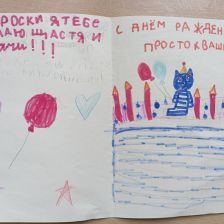 РОСКИ Я ТЕБЕ
ЛАЮ ЩАСТЯ И
АЧИ!!!
С ДНЁМ РАЖДЕН
ПРОСТОКВАШ